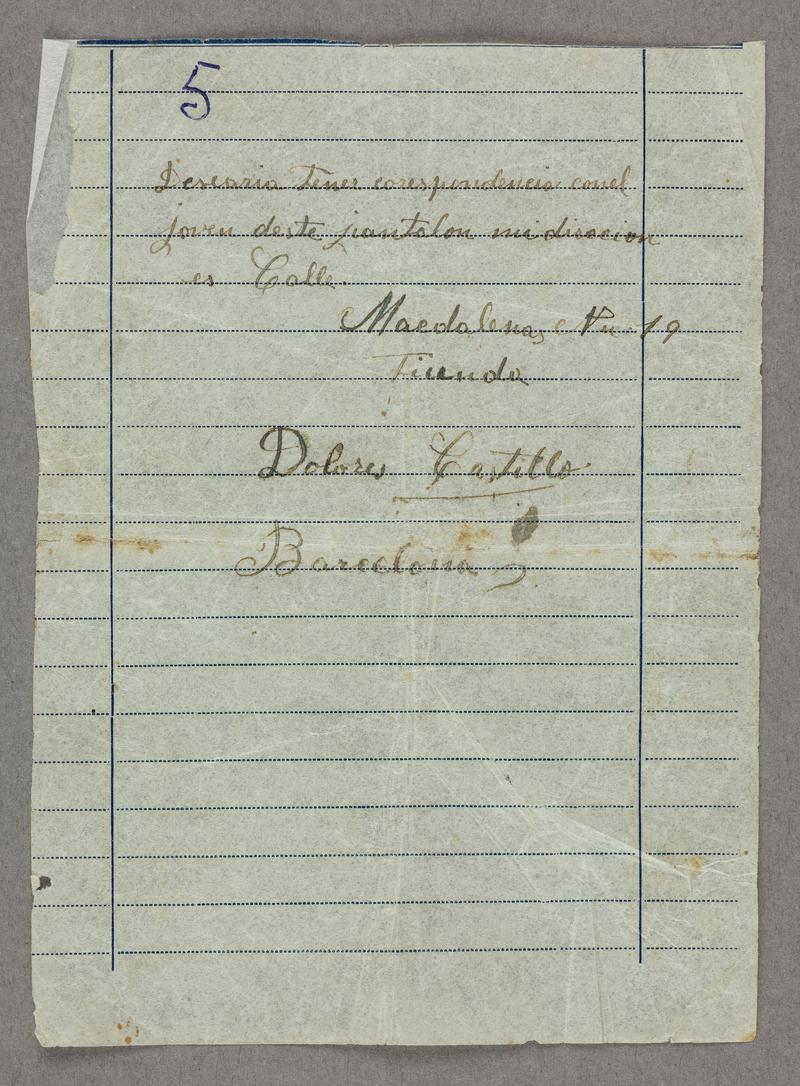 5
Desearia tener corespondencia conel
joven deste pantalon mi direcion
es Calle.
Maedalenas Nu 19
Tienda
Dolores Castillo
Barcelona